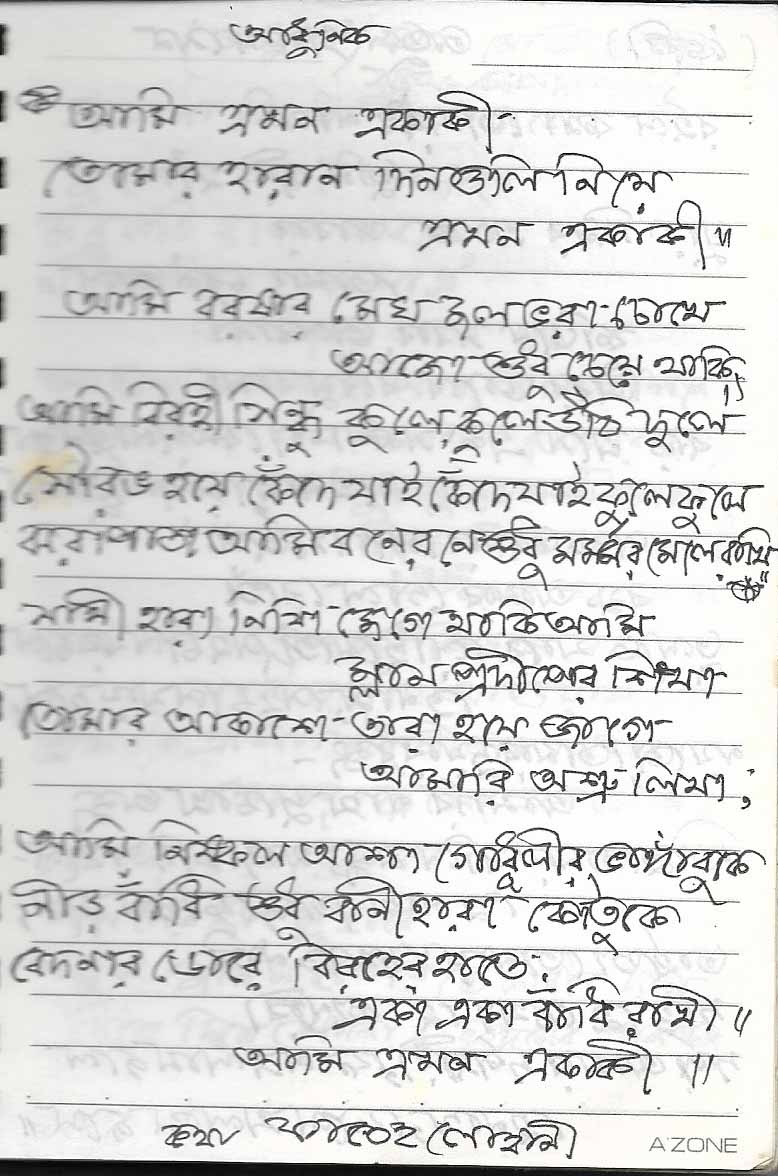 আধুনিক
আমি এমন একাকী-
তোমার হারান দিনগুলি নিয়ে
এমন একাকী॥
আমি বরষার মেঘ জল ভরা-চোখে
আজো শুধু চেয়ে থাকি॥
আমি বিরহী সিন্ধু কুলে কুলে উঠি দুলে
সৌরভ হয়ে কেঁদে যাই কেঁদে যাই ফুলে ফুলে
ঝরাপাতা আমি বনে বনে শুধু মর্মর মেলে রাখি॥
সাথী হারা নিশি- জেগে থাকি আমি
ম্লান প্রদীপের শিখা-
তোমার আকাশে-তারা হয়ে জাগে-
আমারি অশ্রু লিখা;
আমি নিস্ফল আশা গোধুলীর ভাঙ্গাবুকে
নীড় বাঁধি শুধু বানী হারা কৌতুকে
বেদনার ডোরে বিরহের হাতে;
একা একা বাঁধি রাখী॥
আমি এমন একাকী॥
কথা ফতেহ লোহানী
A'ZONE